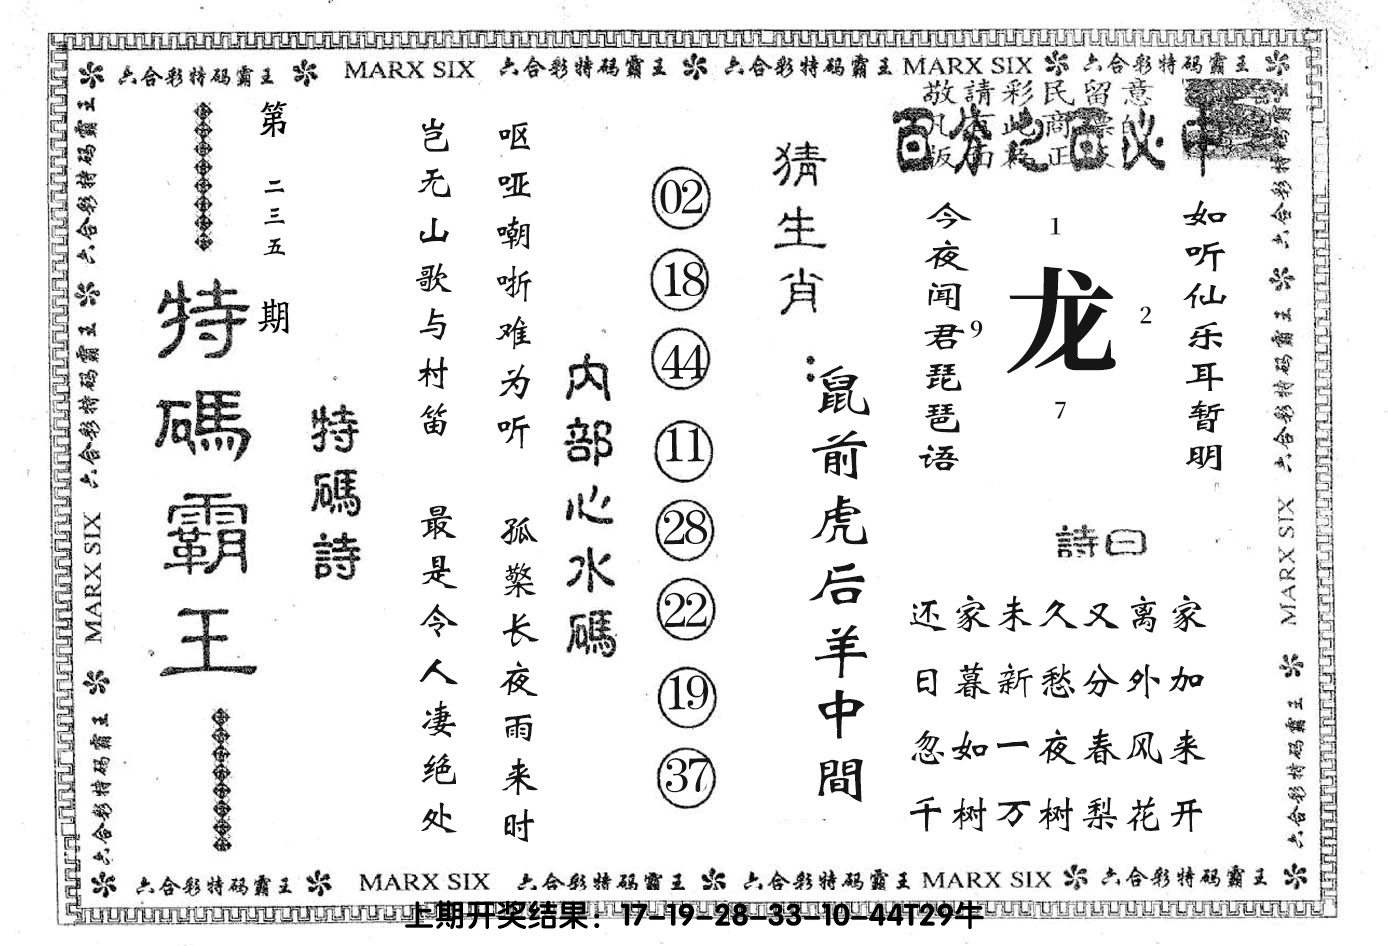 六合彩特码霸王 MARX SIX 六合彩特码霸王 六合彩特码霸王 MARX SIX 六合彩特码霸王
第二三五期
特碼霸王
特碼詩
岂无山歌与村笛
呕哑嘲哳难为听
最是令人凄绝处
孤檠长夜雨来时
内部心水碼
02
18
44
11
28
22
19
37
猜生肖：
鼠前虎后羊中間
敬請彩民留意
百分之百必中
今夜闻君琵琶语
1
9
龙
2
7
如听仙乐耳暂明
詩曰
还家未久又离家
日暮新愁分外加
忽如一夜春风来
千树万树梨花开
六合彩特码霸王 六合彩特码霸王 MARX SIX 六合彩特码霸王
六合彩特码霸王 六合彩特码霸王 MARX SIX 六合彩特码霸王
六合彩特码霸王 MARX SIX 六合彩特码霸王 六合彩特码霸王 MARX SIX 六合彩特码霸王
上期开奖结果：17-19-28-33-10-44T29牛